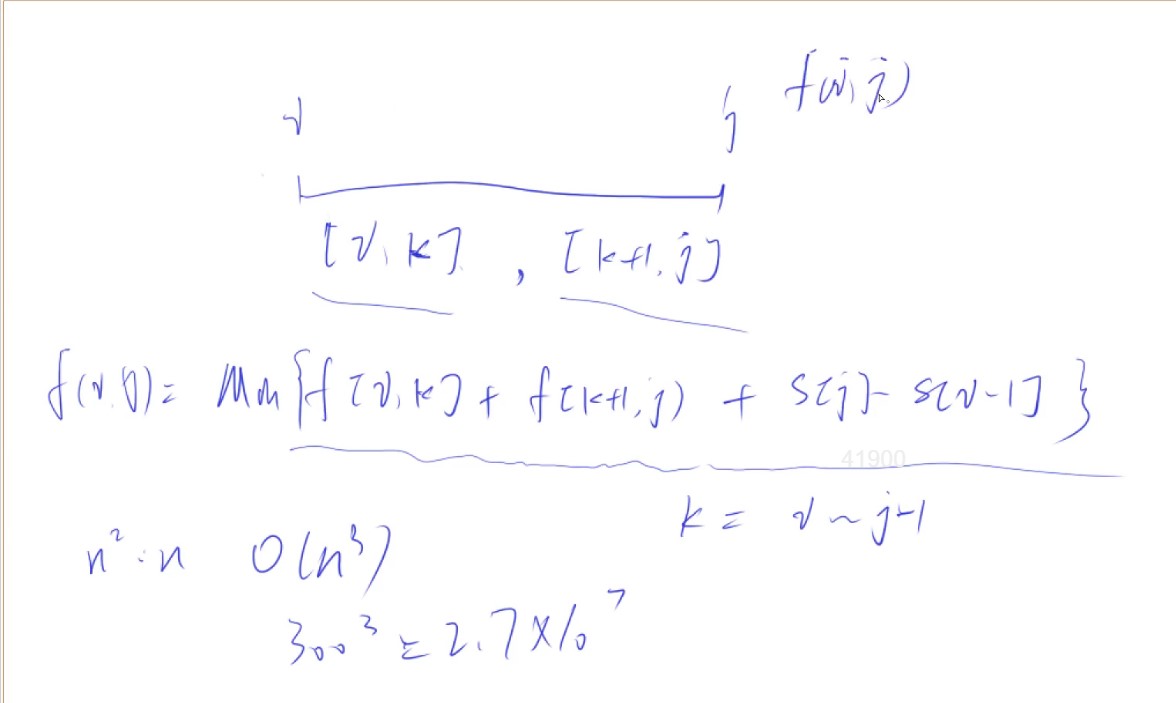 i j f(i,j)
[i,k] , [k+1,j]
f(i,j)= Min{f[i,k]+f[k+1,j)+S[j]-S[i-1]}
41900
k = i ~ j-1
n²·n O(n³)
300³ = 2.7×10⁷